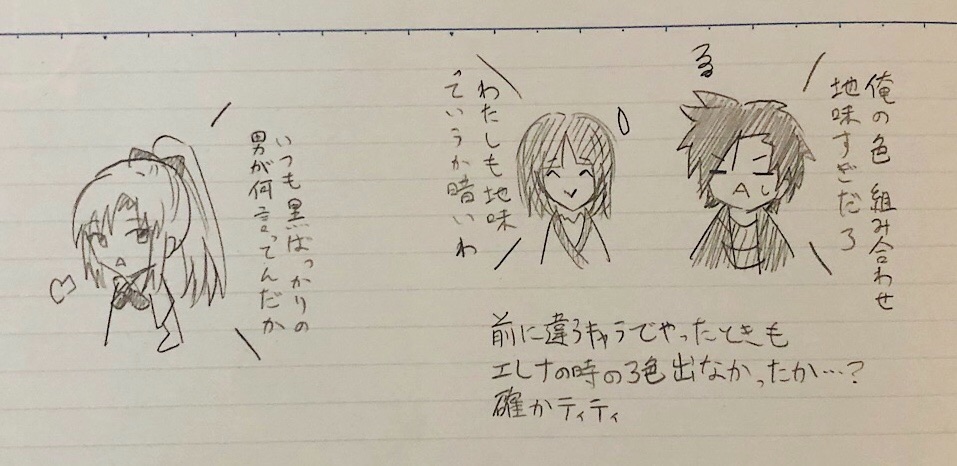 俺の色 組み合わせ
地味すぎだろ
わたしも地味
っていうか暗いわ
いつも黒ばっかりの
男が何言ってんだか
前に違うキャラでやったときも
エレナの時の3色出なかったか…?
確かティティ